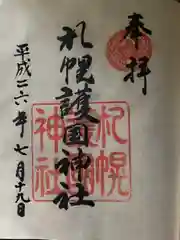 奉拝
札幌護国神社
札幌
護国
神社
平成二六年七月十九日